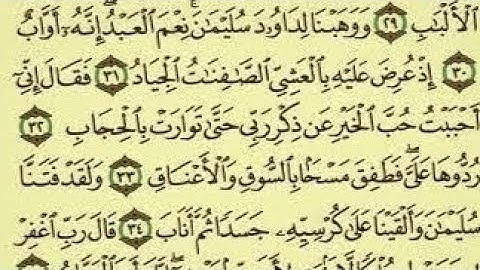 ٱلْأَلْبَٰبِ ٢٩ وَوَهَبْنَا لِدَاوُۥدَ سُلَيْمَٰنَ نِعْمَ ٱلْعَبْدُ إِنَّهُۥٓ أَوَّابٌ
٣٠ إِذْ عُرِضَ عَلَيْهِ بِٱلْعَشِىِّ ٱلصَّٰفِنَٰتُ ٱلْجِيَادُ ٣١ فَقَالَ إِنِّىٓ
أَحْبَبْتُ حُبَّ ٱلْخَيْرِ عَن ذِكْرِ رَبِّى حَتَّىٰ تَوَارَتْ بِٱلْحِجَابِ ٣٢
رُدُّوهَا عَلَىَّ فَطَفِقَ مَسْحًۢا بِٱلسُّوقِ وَٱلْأَعْنَاقِ ٣٣ وَلَقَدْ فَتَنَّا
سُلَيْمَٰنَ وَأَلْقَيْنَا عَلَىٰ كُرْسِيِّهِۦ جَسَدًا ثُمَّ أَنَابَ ٣٤ قَالَ رَبِّ ٱغْفِرْ